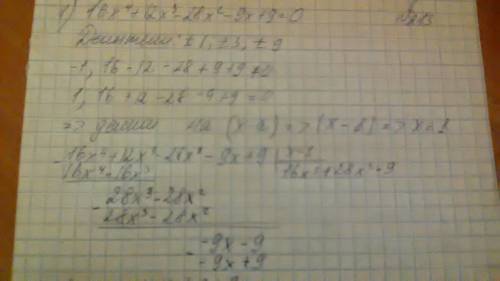 1) 16x⁴+12x³-28x²-9x+9=0
Делители: ±1, ±3, ±9
-1, 16-12-28+9+9≠0
1, 16+12-28-9+9=0
=> делим на (x-a) => (x-1) => x=1
-16x⁴+12x³-28x²-9x+9 | x-1
16x⁴-16x³ 16x³+28x²-9
28x³-28x²
-28x³-28x²
-9x-9
- -9x+9